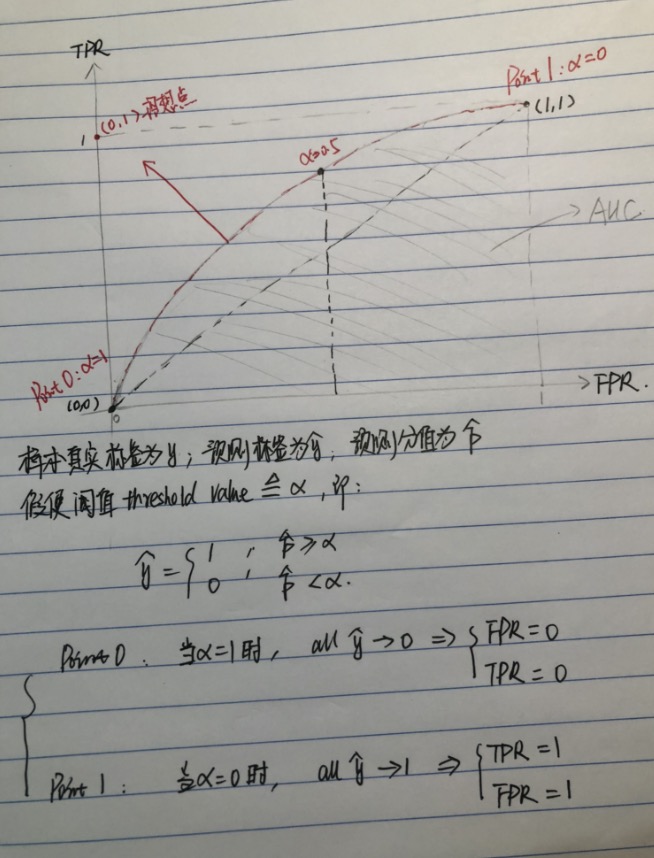 TPR
Point 1: α=0
(0,1) 理想点
(1,1)
1
α=0.5
AUC
Point 0: α=1
FPR.
(0,0)
0
样本真实标签为 y; 预测标签为 ŷ, 预测分值为 p̂
假使阈值 threshold value ≙ α, 即:
ŷ = { 1 ; p̂ ≥ α
0 ; p̂ < α.
Point 0: 当α=1时, all ŷ → 0 ⇒ { FPR = 0
TPR = 0
Point 1: 当α=0时, all ŷ → 1 ⇒ { TPR = 1
FPR = 1